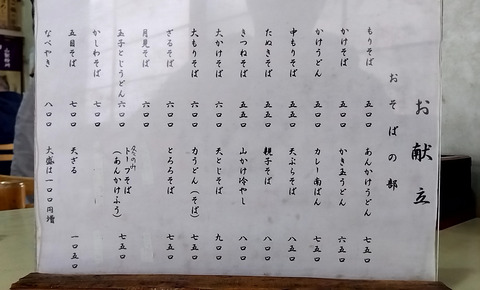 お献立
おそばの部
もりそば 五〇〇
かけそば 五〇〇
かけうどん 五〇〇
中もりそば 五五〇
たぬきそば 五五〇
きつねそば 五五〇
大かけそば 六〇〇
大もりそば 六〇〇
ざるそば 六〇〇
月見そば 六〇〇
玉子とじうどん 六〇〇
かしわそば 七〇〇
五目そば 七〇〇
なべやき 八〇〇
あんかけうどん 七五〇
かき玉うどん 六五〇
カレー南ばん 七五〇
天ぷらそば 八五〇
親子そば 八〇〇
山かけ冷やし 八〇〇
天とじそば 九〇〇
力うどん(そば) 七五〇
とろろそば 七五〇
冬のみ
トーフそば
(あんかけふう) 七五〇
天ざる 一〇五〇
大盛は一〇〇円増